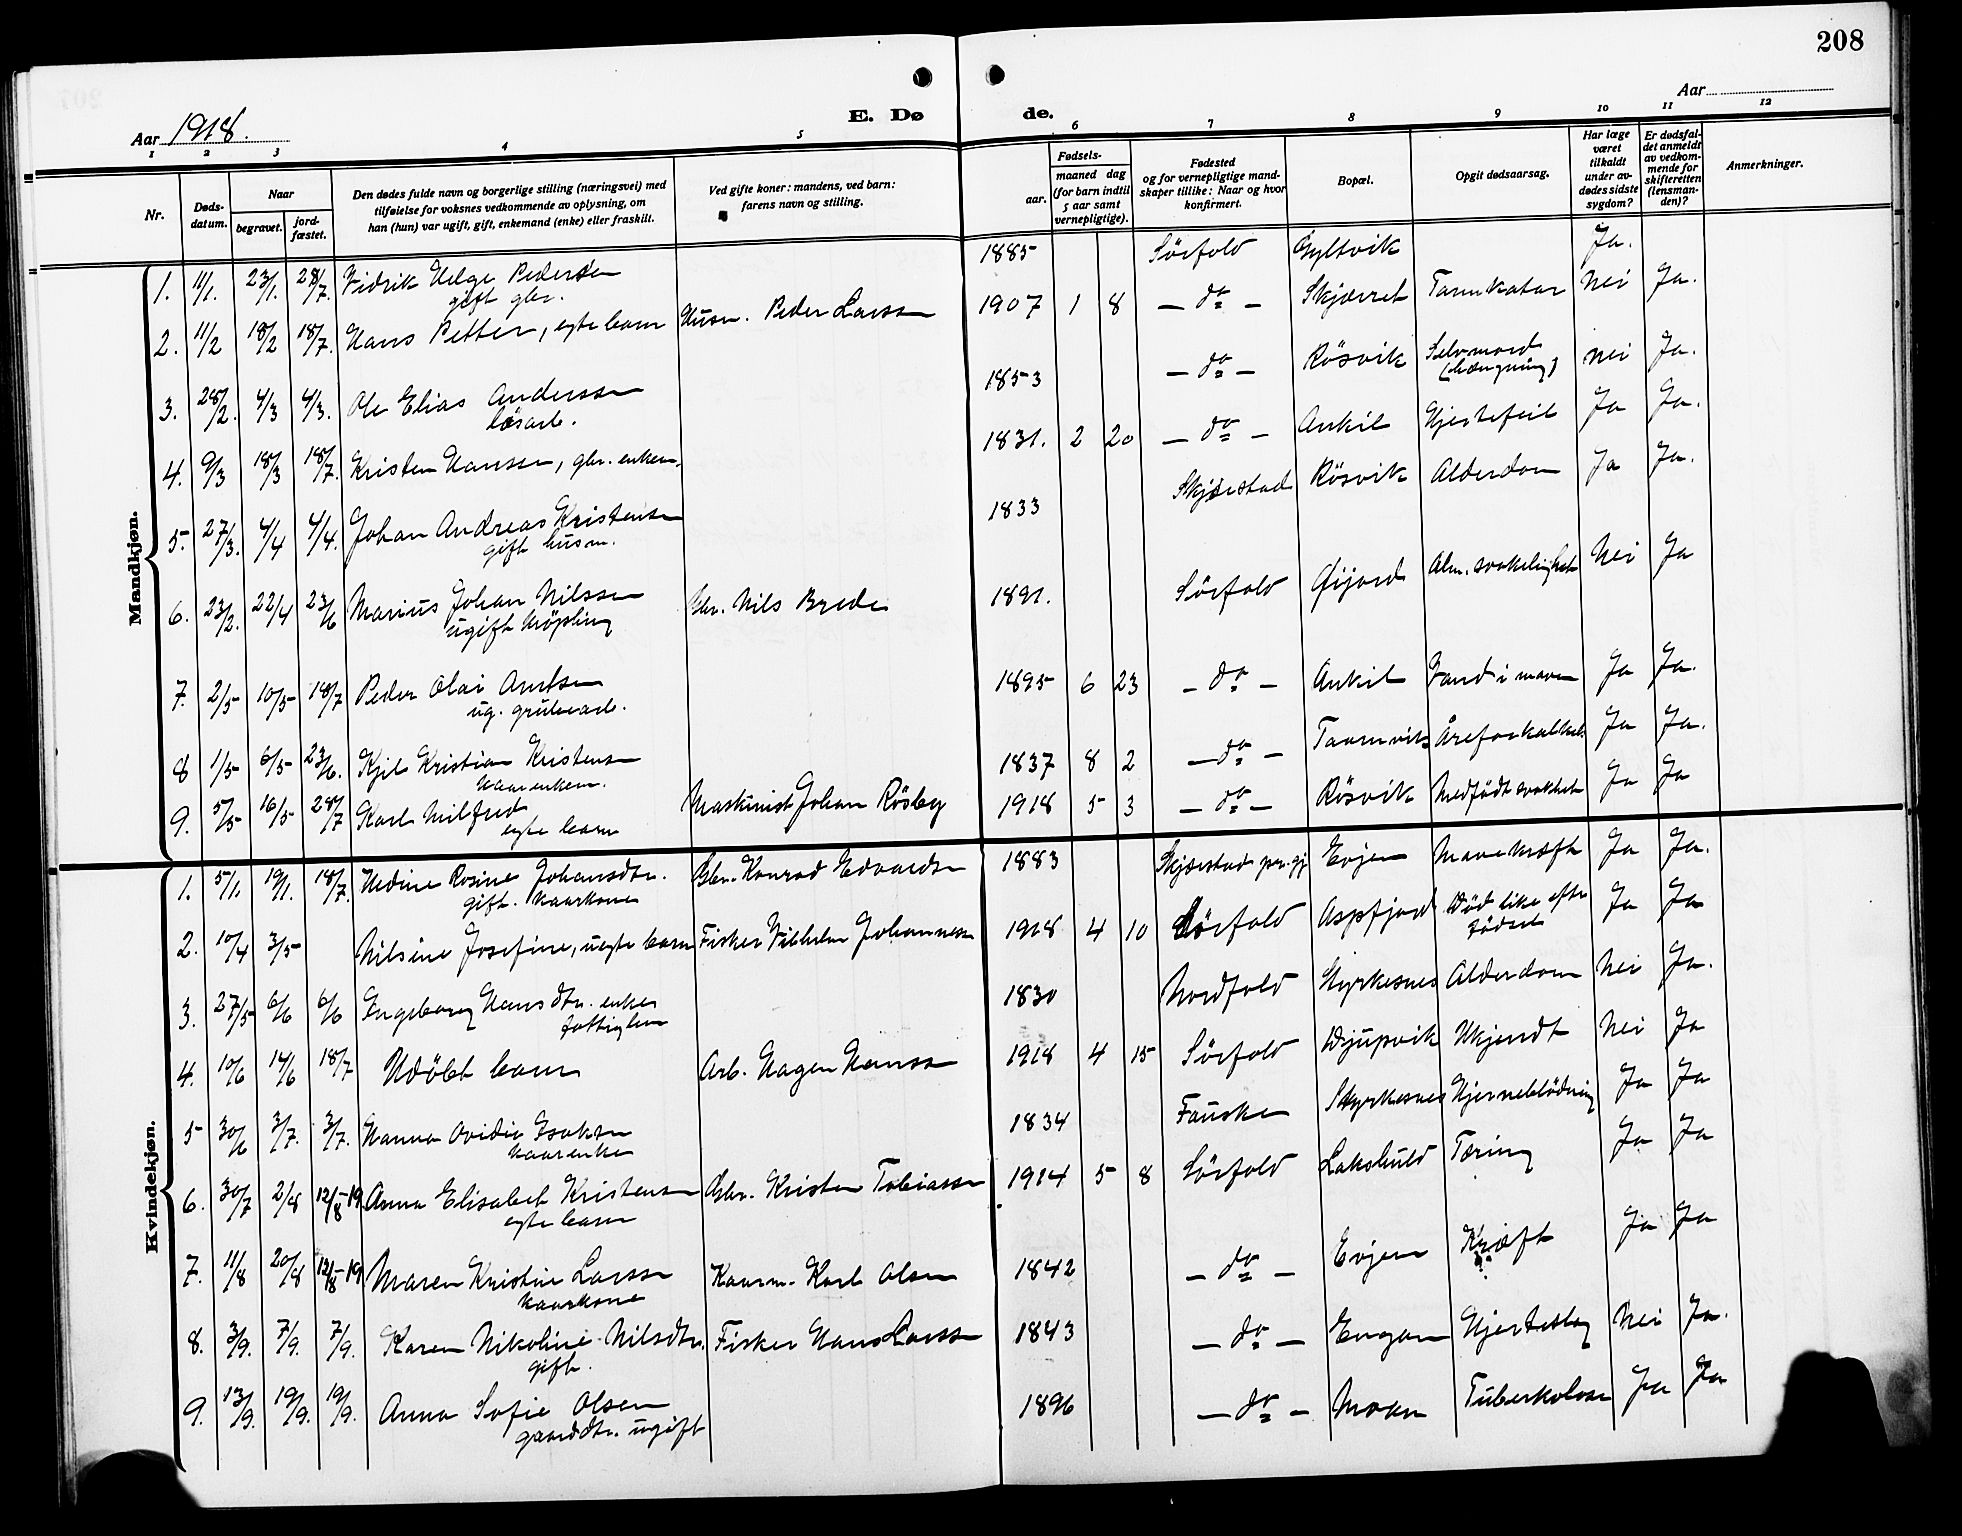 208
Aar 1918.
E. Dø de.
Aar
1 2 3 4 5 6 7 8 9 10 11 12
Nr.
Døds-
datum.
Naar
begravet.
jord-
fæstet.
Den dødes fulde navn og borgerlige stilling (næringsvei) med
tilføielse for voksnes vedkommende av oplysning, om
han (hun) var ugift, gift, enkemand (enke) eller fraskilt.
Ved gifte koner: mandens, ved barn:
farens navn og stilling.
Fødsels-
aar.
maaned dag
(for barn indtil
5 aar samt
vernepligtige).
Fødested
og for vernepligtige mand-
skaper tillike: Naar og hvor
konfirmert.
Bopæl.
Opgit dødsaarsag.
Har læge
været
tilkaldt
under av-
dødes sidste
sygdom?
Er dødsfal-
det anmeldt
av vedkom-
mende for
skifteretten
(lensman-
den)?
Anmerkninger.
Mandkjøn.
1. 11/1. 23/1. 28/7. Fidrik Helge Pedersen 1885 Sörfold Gyltvik Ja.
gift gbr.
2. 11/2 18/2 18/7. Hans Petter, egte barn Husm. Peder Larssen 1907 1 8 - do - Skjærret Tarmkatar Nei Ja.
3. 28/2. 4/3 4/3. Ole Elias Anderssen 1853 - do - Rösvik Selvmord (hængning) nei Ja.
lösarb.
4. 9/3 18/3 18/7. Kristen Hanssen, gbr. enkem. 1831. 2 20 - do - Ankil Hjertefeil Ja Ja.
5. 27/3. 4/4 4/4. Johan Andreas Kristensen 1833 Skjerstad Rösvik Alderdom Ja Ja.
gift husm.
6. 23/2. 22/4 23/6 Marius Johan Nilssen Gbr. Nils Brede 1891. Sörfold Øijord Alm. svakelighet Nei Ja
ugift kröpling
7. 2/5 10/5 18/7 Peder Olai Antsen 1895 6 23 - do - Ankil Vand i maven Ja Ja.
ug. grubearb.
8 1/5 6/5 23/6. Kjil Kristian Kristensen 1837 8 2 - do - Taarnvik Åreforkalkel. Ja Ja.
kaarenkem.
9. 5/5 16/5 28/7 Karl Milfred Maskinist Johan Rösbeg 1918 5 3 - do - Rösvik Medfödt svakhet Ja Ja
egte barn
Kvindekjøn.
1. 5/1. 19/1. 18/7. Hedine Rosine Johansdtr. Gbr. Konrad Edvardsen 1883 Skjerstad Evjen Mavekræft Ja Ja.
gift. kaarkone
2. 10/4 3/5 Nilsine Josefine, uegte barn Fisker Vilhelm Johannesen 1918 4 10 Sörfold Aspfjord Död like efter födsel Ja Ja
3. 27/5 6/6 6/6 Ingeborg Hansdtr. enke 1830 Nordfold Styrkesnes Alderdom Nei Ja.
fattiglem
4. 10/6 14/6 18/7 Udöbt barn Arb. Hagen Hanssen 1918 4 15 Sörfold Djupvik Ukjendt Nei Ja
5 30/6 3/7. 3/7. Hanna Ovidie Isaksen 1834 Fauske Styrkesnes Hjerneblödning Ja Ja
kaarenke
6. 30/7 2/8 12/8-19 Anna Elisabet Kristensen Gbr. Kristen Tobiassen 1914 5 8 Sörfold Lakshuld Tæring Ja Ja
egte barn
7. 11/8 20/8 12/8-19 Maren Kristine Larssen Kaarm. Karl Olsen 1842 - do - Evjen Kræft Ja Ja
kaarkone
8. 3/9. 7/9. 7/9. Karen Nikoline Nilsdtr. Fisker Hans Larssen 1843 - do - Engan Hjerteslag Nei Ja.
gift.
9. 13/9. 19/9. 19/9. Anna Sofie Olsen 1896 - do - Moan Tuberkolose Ja Ja
gaarddtr. ugift